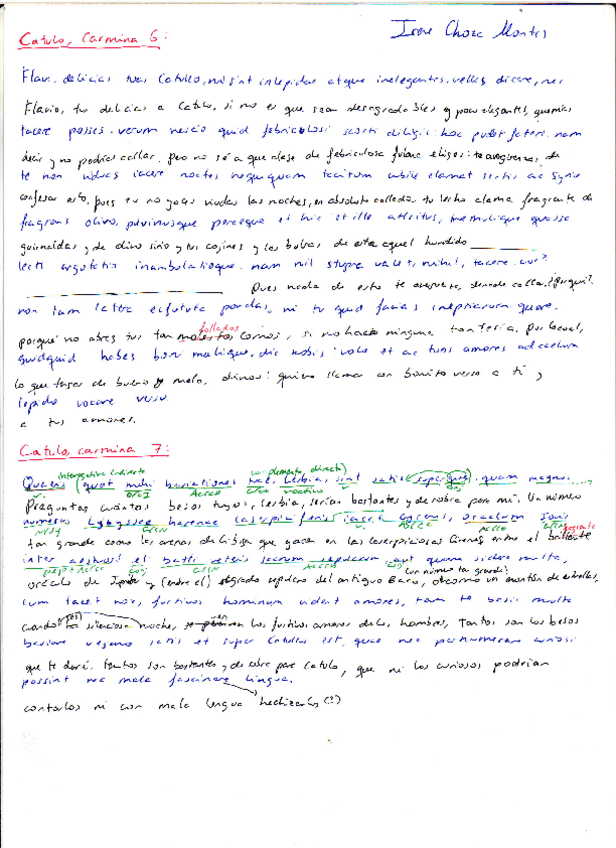 Catulo, Carmina 6:
Irene Montes
Flavi, delicias tuas Catullo, ni sint inlepidae atque inelegantes, velles dicere, nec
Flavio, tu delicias a Catulo, si no es que sean desagradables y poco elegantes, querrías
tacere posses. verum nescio quid febriculosi scorti diligis: hoc pudet fateri. nam
decir y no podrías callar. Pero no sé a que clase de febriculosa eliges: te avergüenza de
te non viduas iacere noctes nequiquam tacitum cubile clamat sertis ac Syrio
confesar esto, pues en no yaces viudas las noches, en absoluto callado. tu lecho clama fragante de
fragrans olivo, pulvinusque peraeque et hic et ille attritus, tremulique quassa
guirnaldas y de olivo sirio y tus cojines y las de este aquel hundido
lecti argutatio inambulatioque. nam nil stupra valet, nihil, tacere. cur?
Pues nada de esto te callar. ¿Porqué?
non tam latera ecfututa pandas, ni tu quid facias ineptiarum. quare,
follados
porqué no abres tus tan molestos, si no haces ninguna tontería. Por lo cual,
quidquid habes boni malique, dic nobis: volo te ac tuos amores ad caelum
lo que tengas de bueno y malo, dinos: quiero llamar con bonito verso a ti y
lepido vocare versu
a tus amores.
Catulo, carmina 7:
interrogativa indirecta
complemento directo
Quaeris quot mihi basiationes tuae, Lesbia, sint satis superque. quam magnus
Preguntas cuántos besos tuyos, Lesbia, serían bastantes y de sobra para mi. Un número
numerus Libyssae harenae lasarpiciferis iacet Cyrenis, oraclum Iovis
tan grande como las arenas de Libia que yacen en las Cirenes entre el brillante
inter aestuosi et Batti veteris sacrum sepulcrum aut quam sidera multa,
(un número tan grande)
oráculo de Júpiter y (entre el) sagrado sepulcro del antiguo Baco, o como un montón de estrellas,
cum tacet nox, furtivos hominum vident amores, tam te basia multa
cuando silenciosa noche, los furtivos amores de los hombres, tantos son los besos
basiare vesano satis et super Catullo est, quae nec pernumerare curiosi
que te dará. tantos son bastantes y de sobra para Catulo, que ni los curiosos podrían
possint nec mala fascinare lingua.
contarlos ni con mala lengua hechizarlos (?)